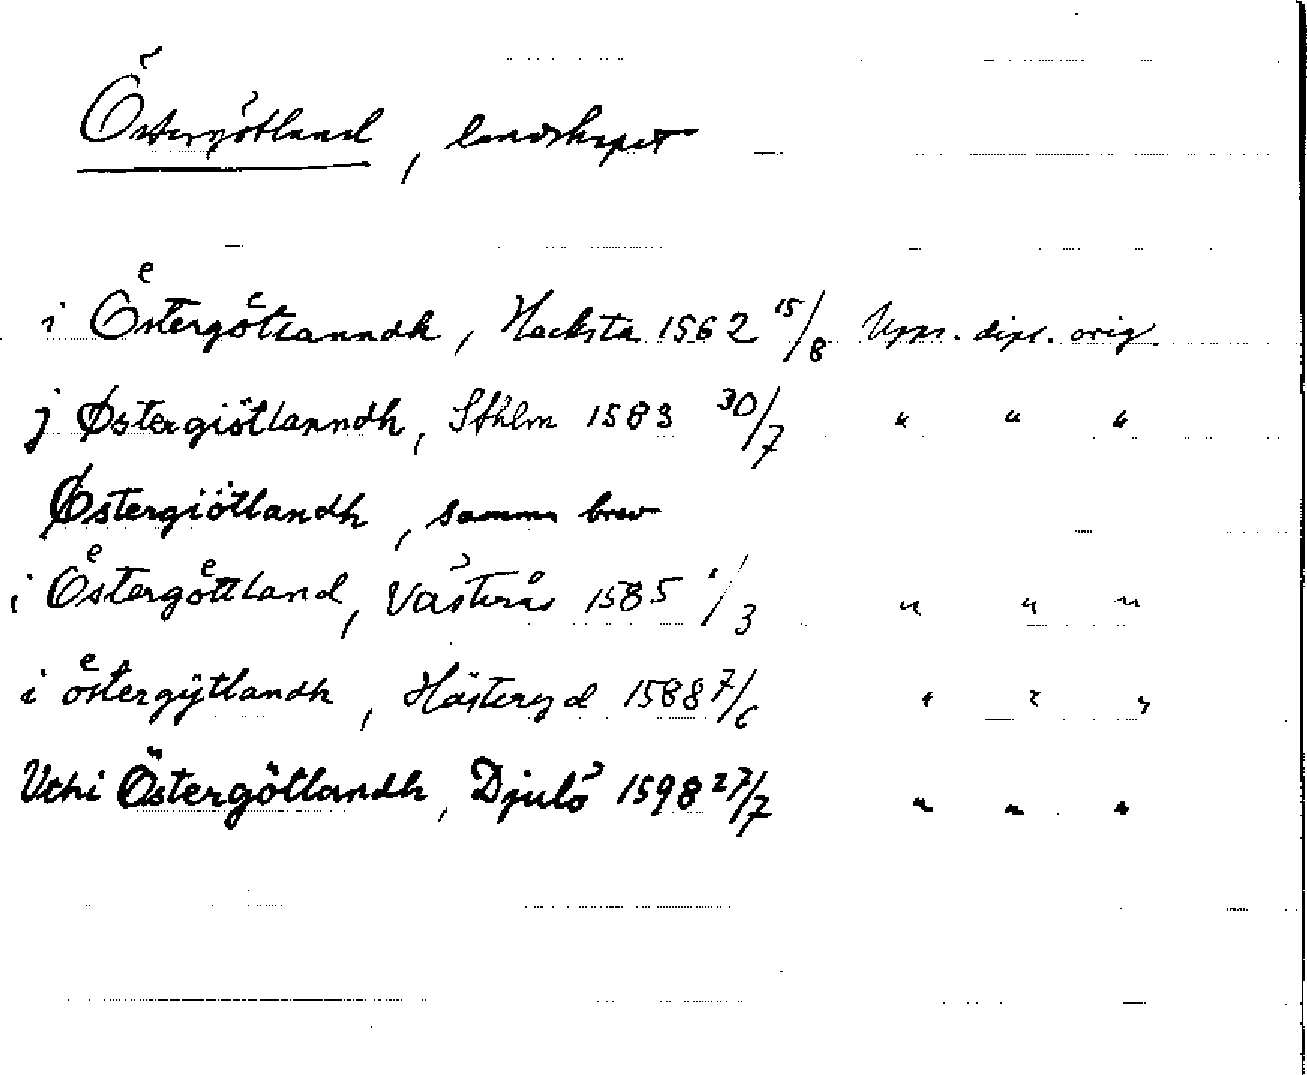 Östergötland, landskapet
i Oͤstergoͤtlanndh, Hacksta 1562 15/8 Upps. dipl. orig.
j Østergiötlanndh, Sthlm 1583 30/7 " " "
Østergiötlandh, samma brev
i Oͤstergoͤttland, Västerås 1585 1/3 " " "
i oͤstergÿtlandh, Hästeryd 1588 7/6 " " "
Vthi Östergötlandh, Djulö 1598 27/7 " " "